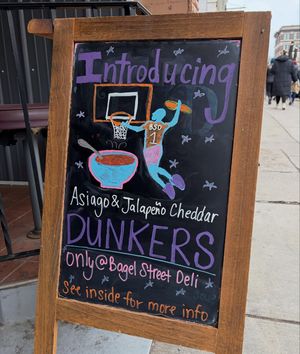 Introducing
BSD
1
Asiago & Jalapeño Cheddar
DUNKERS
only @ Bagel Street Deli
See inside for more info